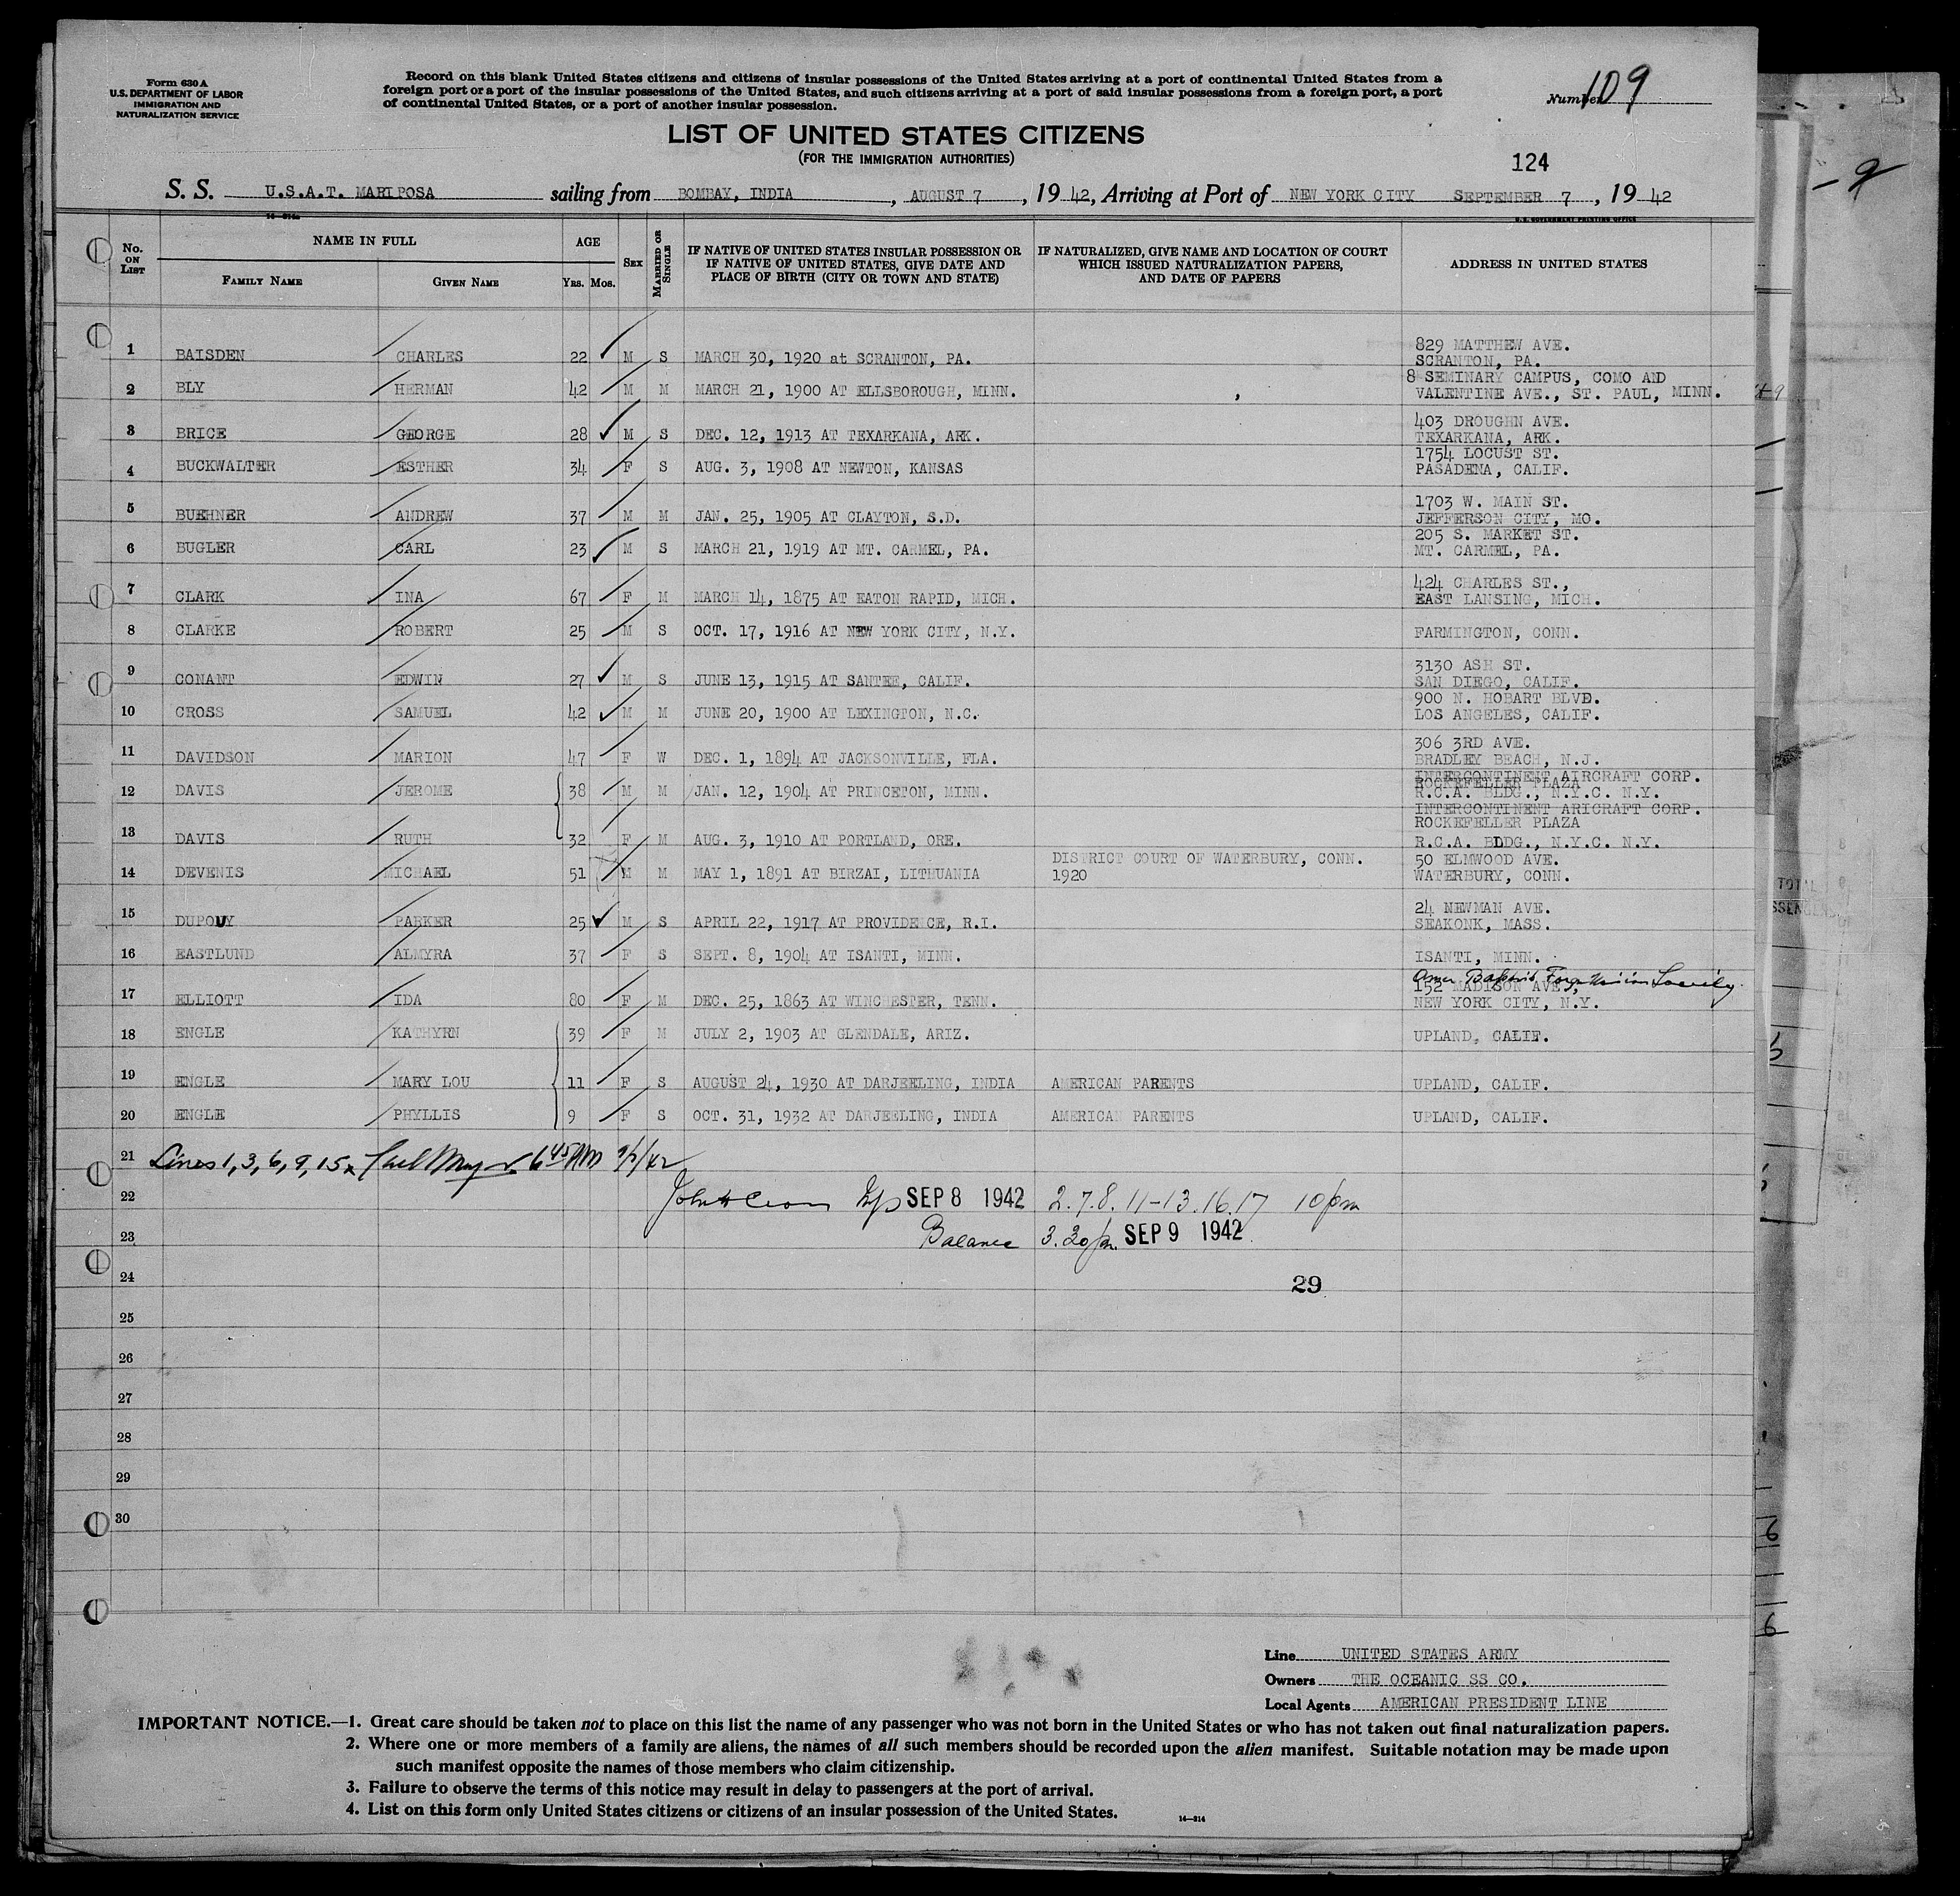 Form 630 A
U.S. DEPARTMENT OF LABOR
IMMIGRATION AND
NATURALIZATION SERVICE
Record on this blank United States citizens and citizens of insular possessions of the United States arriving at a port of continental United States from a
foreign port or a port of the insular possessions of the United States, and such citizens arriving at a port of said insular possessions from a foreign port, a port
of continental United States, or a port of another insular possession.
Number 109
LIST OF UNITED STATES CITIZENS
(FOR THE IMMIGRATION AUTHORITIES)
124
S. S. U.S.A.T. MARIPOSA sailing from BOMBAY, INDIA, AUGUST 7, 1942, Arriving at Port of NEW YORK CITY SEPTEMBER 7, 1942
14—214a
U. S. GOVERNMENT PRINTING OFFICE
No. ON LIST
NAME IN FULL
FAMILY NAME
GIVEN NAME
AGE
YRS. MOS.
SEX
MARRIED OR SINGLE
IF NATIVE OF UNITED STATES INSULAR POSSESSION OR
IF NATIVE OF UNITED STATES, GIVE DATE AND
PLACE OF BIRTH (CITY OR TOWN AND STATE)
IF NATURALIZED, GIVE NAME AND LOCATION OF COURT
WHICH ISSUED NATURALIZATION PAPERS,
AND DATE OF PAPERS
ADDRESS IN UNITED STATES
829 MATTHEW AVE.
1 BAISDEN CHARLES 22 M S MARCH 30, 1920 at SCRANTON, PA. SCRANTON, PA.
8 SEMINARY CAMPUS, COMO AND
2 BLY HERMAN 42 M M MARCH 21, 1900 AT ELLSBOROUGH, MINN. VALENTINE AVE., ST. PAUL, MINN.
403 DROUGHN AVE.
3 BRICE GEORGE 28 M S DEC. 12, 1913 AT TEXARKANA, ARK. TEXARKANA, ARK.
1754 LOCUST ST.
4 BUCKWALTER ESTHER 34 F S AUG. 3, 1908 AT NEWTON, KANSAS PASADENA, CALIF.
1703 W. MAIN ST.
5 BUEHNER ANDREW 37 M M JAN. 25, 1905 AT CLAYTON, S.D. JEFFERSON CITY, MO.
205 S. MARKET ST.
6 BUGLER CARL 23 M S MARCH 21, 1919 AT MT. CARMEL, PA. MT. CARMEL, PA.
424 CHARLES ST.,
7 CLARK INA 67 F M MARCH 14, 1875 AT EATON RAPID, MICH. EAST LANSING, MICH.
8 CLARKE ROBERT 25 M S OCT. 17, 1916 AT NEW YORK CITY, N.Y. FARMINGTON, CONN.
3130 ASH ST.
9 CONANT EDWIN 27 M S JUNE 13, 1915 AT SANTEE, CALIF. SAN DIEGO, CALIF.
900 N. HOBART BLVD.
10 CROSS SAMUEL 42 M M JUNE 20, 1900 AT LEXINGTON, N.C. LOS ANGELES, CALIF.
306 3RD AVE.
11 DAVIDSON MARION 47 F W DEC. 1, 1894 AT JACKSONVILLE, FLA. BRADLEY BEACH, N.J.
INTERCONTINENT AIRCRAFT CORP.
ROCKEFELLER PLAZA
12 DAVIS JEROME 38 M M JAN. 12, 1904 AT PRINCETON, MINN. R.C.A. BLDG., N.Y.C. N.Y.
INTERCONTINENT ARICRAFT CORP.
ROCKEFELLER PLAZA
13 DAVIS RUTH 32 F M AUG. 3, 1910 AT PORTLAND, ORE. R.C.A. BLDG., N.Y.C. N.Y.
DISTRICT COURT OF WATERBURY, CONN. 50 ELMWOOD AVE.
14 DEVENIS MICHAEL 51 M M MAY 1, 1891 AT BIRZAI, LITHUANIA 1920 WATERBURY, CONN.
24 NEWMAN AVE.
15 DUPOUY PARKER 25 M S APRIL 22, 1917 AT PROVIDENCE, R.I. SEAKONK, MASS.
16 EASTLUND ALMYRA 37 F S SEPT. 8, 1904 AT ISANTI, MINN. ISANTI, MINN.
Amer Baptist Foreign Mission Society
152 MADISON AVE.,
17 ELLIOTT IDA 80 F M DEC. 25, 1863 AT WINCHESTER, TENN. NEW YORK CITY, N.Y.
18 ENGLE KATHYRN 39 F M JULY 2, 1903 AT GLENDALE, ARIZ. UPLAND, CALIF.
19 ENGLE MARY LOU 11 F S AUGUST 24, 1930 AT DARJEELING, INDIA AMERICAN PARENTS UPLAND, CALIF.
20 ENGLE PHYLLIS 9 F S OCT. 31, 1932 AT DARJEELING, INDIA AMERICAN PARENTS UPLAND, CALIF.
21 Lines 1, 3, 6, 9, 15 6 45 PM
22 John SEP 8 1942 2.7.8. 11-13.16.17 10 pm
23 Balance 3.30 pm SEP 9 1942
24 29
25
26
27
28
29
30
Line UNITED STATES ARMY
Owners THE OCEANIC SS CO.
Local Agents AMERICAN PRESIDENT LINE
IMPORTANT NOTICE.—1. Great care should be taken not to place on this list the name of any passenger who was not born in the United States or who has not taken out final naturalization papers.
2. Where one or more members of a family are aliens, the names of all such members should be recorded upon the alien manifest. Suitable notation may be made upon
such manifest opposite the names of those members who claim citizenship.
3. Failure to observe the terms of this notice may result in delay to passengers at the port of arrival.
4. List on this form only United States citizens or citizens of an insular possession of the United States.
14—214